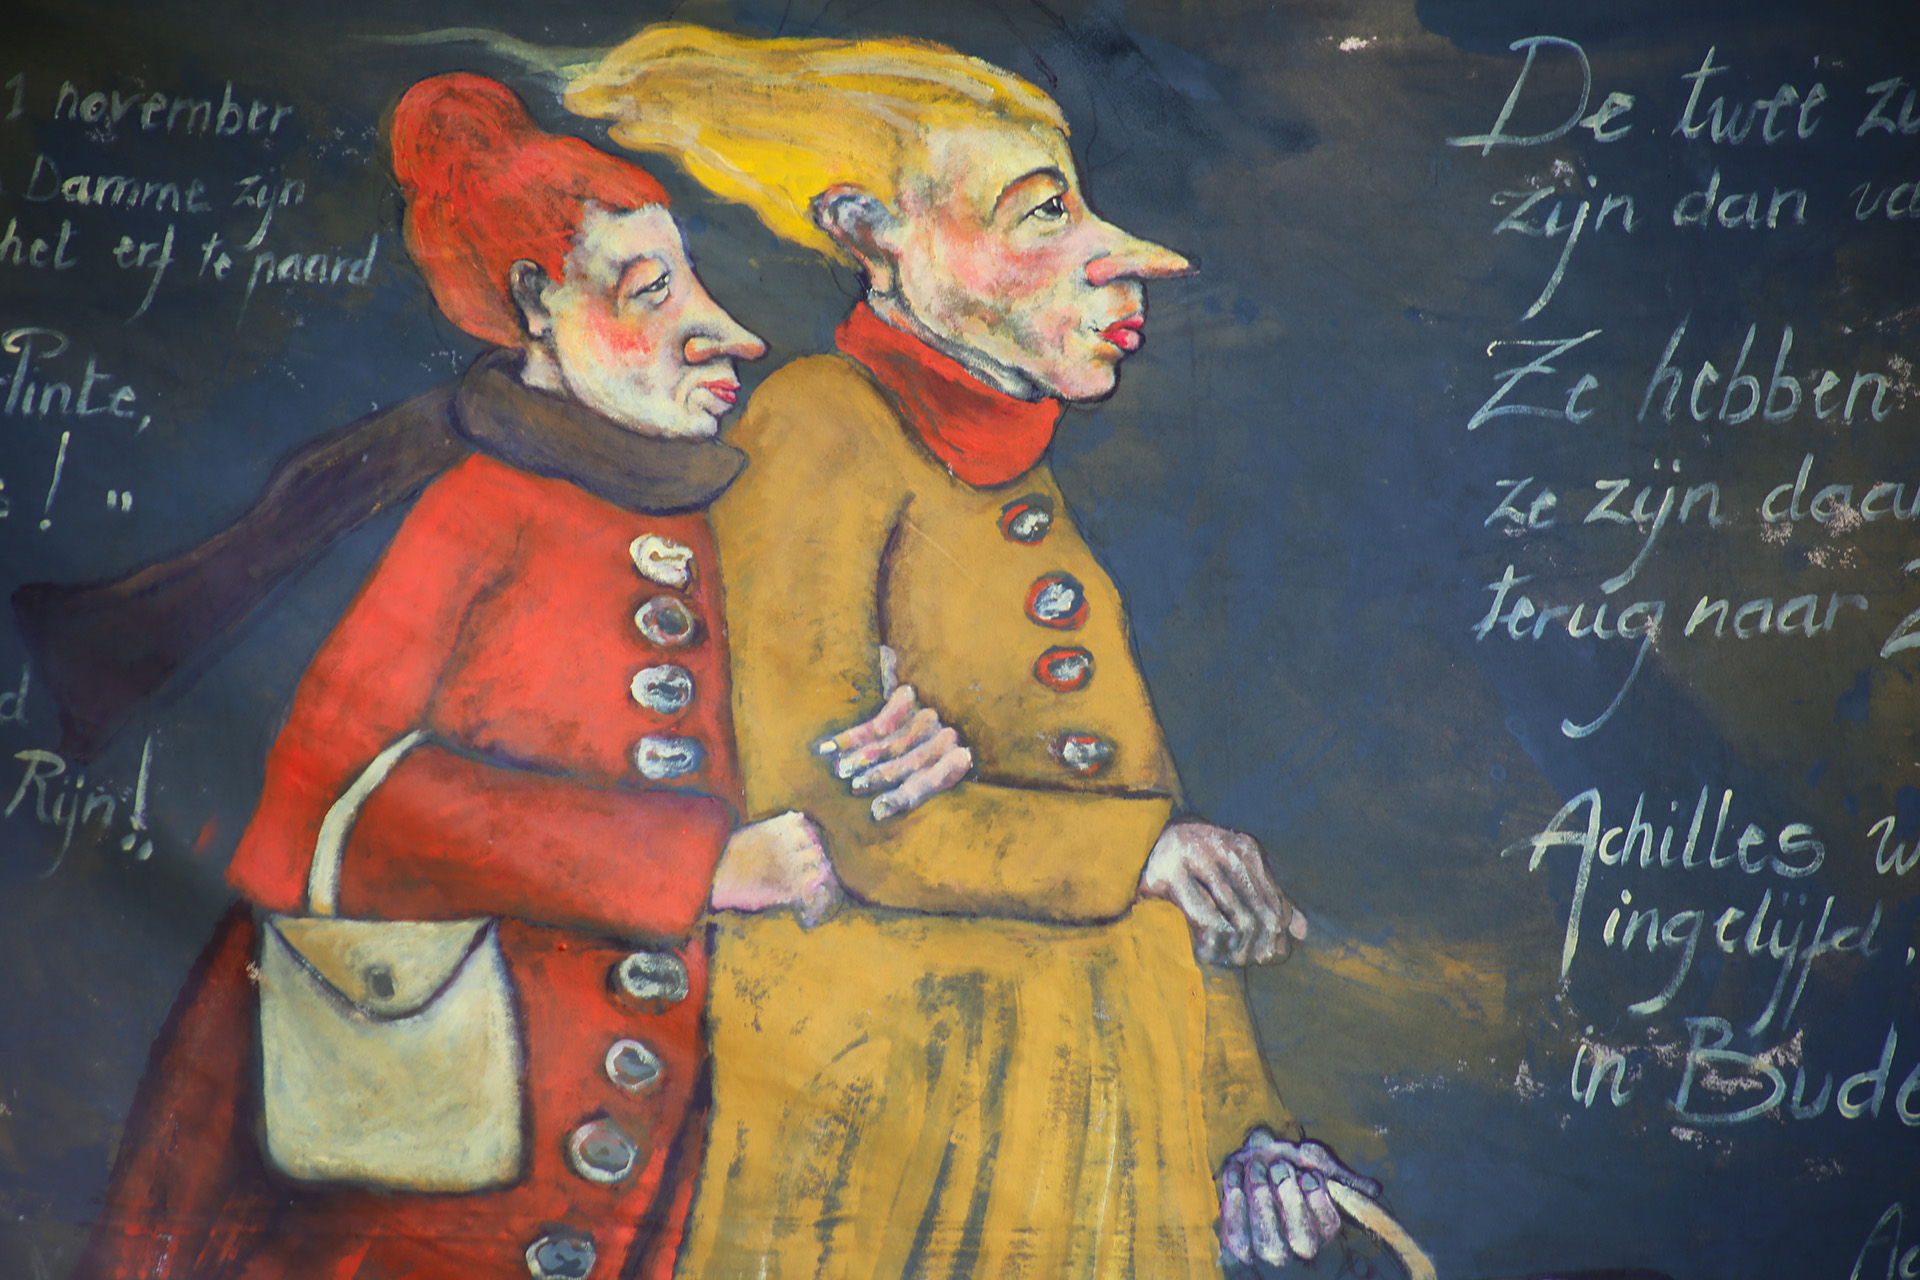 1 november
Damme zijn
het erf te paard
Pinte,
! "
d
Rijn!
De twee zu
zijn dan va
Ze hebben
ze zijn daar
terug naar Z
Achilles w
ingelijfd,
in Bude
A